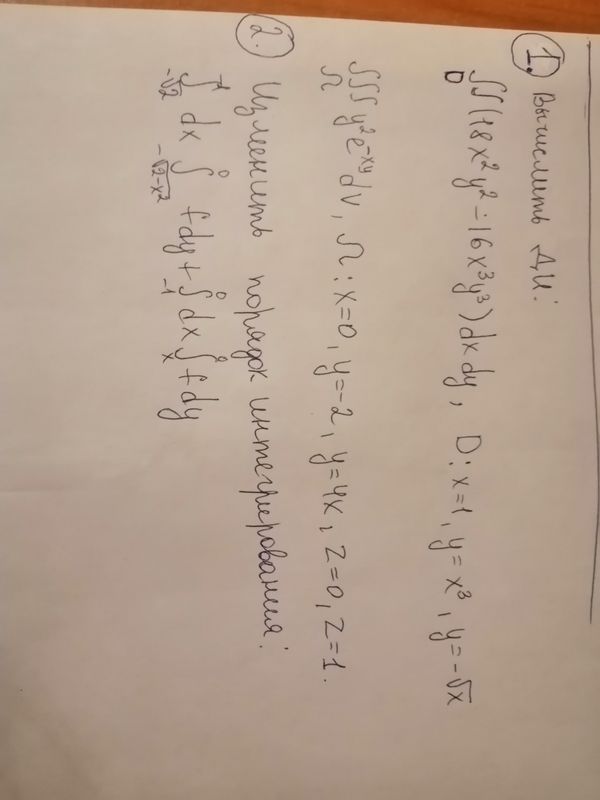 1. Вычислить ДИ:
∬_D (18x²y² - 16x³y³) dx dy, D: x=1, y=x³, y=-√x
∭_Ω y²e^(-xy) dv, Ω: x=0, y=-2, y=4x, z=0, z=1.
2. Изменить порядок интегрирования:
∫_(-√2)^(-1) dx ∫_(-√(2-x²))^0 f dy + ∫_(-1)^0 dx ∫_x^0 f dy